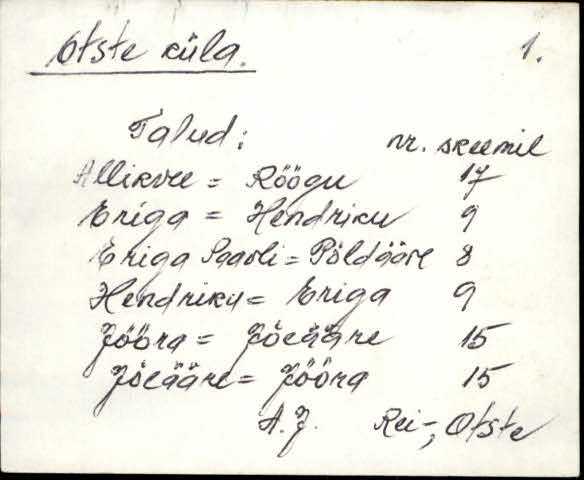 Otste küla. 1.
Talud: nr. skeemil
Allikvee = Röögu 17
Eriga = Hendriku 9
Eriga Paavli = Põldääre 8
Hendriku = Eriga 9
Jööra = Jõeääre 15
Jõeääre = Jööra 15
A.J. Rei-, Otste